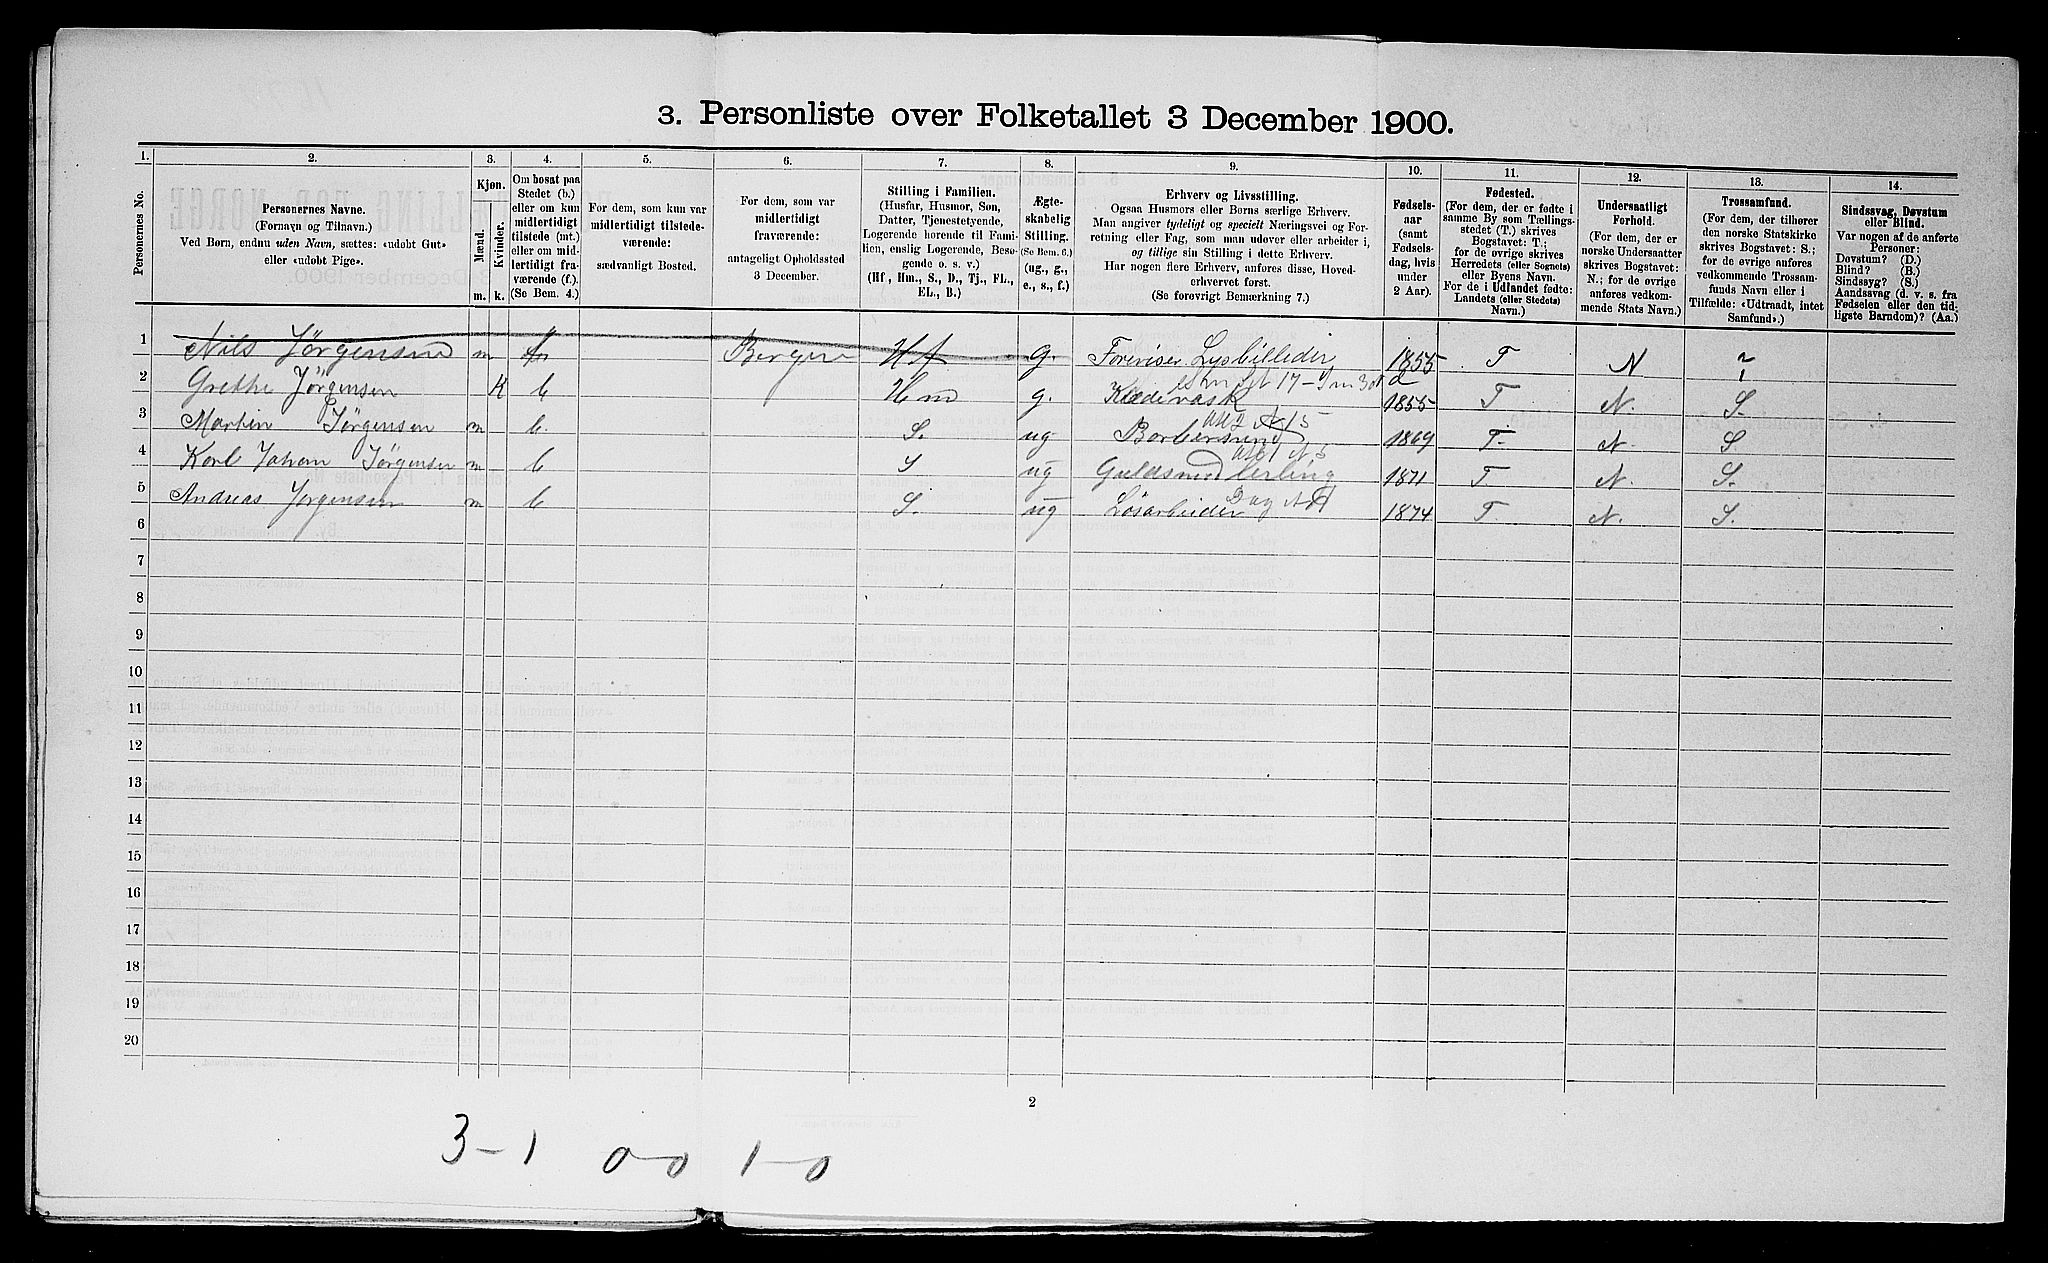 3. Personliste over Folketallet 3 December 1900.
1.
Personernes No.
2.
Personernes Navne.
(Fornavn og Tilnavn.)
Ved Børn, endnu uden Navn, sættes: «udøbt Gut»
eller «udøbt Pige».
3.
Kjøn.
Mænd.
Kvinder.
m.
k.
4.
Om bosat paa
Stedet (b.)
eller om kun
midlertidigt
tilstede (mt.)
eller om mid-
lertidigt fra-
værende (f.).
(Se Bem. 4.)
5.
For dem, som kun var
midlertidigt tilstede-
værende:
sædvanligt Bosted.
6.
For dem, som var
midlertidigt
fraværende:
antageligt Opholdssted
3 December.
7.
Stilling i Familien.
(Husfar, Husmor, Søn,
Datter, Tjenestetyende,
Logerende hørende til Fami-
lien, enslig Logerende, Besø-
gende o. s. v.)
(Hf, Hm., S., D., Tj., FL.,
EL., B.)
8.
Ægte-
skabelig
Stilling.
(Se Bem. 6.)
(ug., g.,
e., s., f.)
9.
Erhverv og Livsstilling.
Ogsaa Husmors eller Børns særlige Erhverv.
Man angiver tydeligt og specielt Næringsvei og For-
retning eller Fag, som man udøver eller arbeider i,
og tillige sin Stilling i dette Erhverv.
Har nogen flere Erhverv, anføres disse, Hoved-
erhvervet først.
(Se forøvrigt Bemærkning 7.)
10.
Fødsels-
aar
(samt
Fødsels-
dag, hvis
under
2 Aar).
11.
Fødested.
(For dem, der er fødte i
samme By som Tællings-
stedet (T.) skrives
Bogstavet: T.;
for de øvrige skrives
Herredets (eller Sognets)
eller Byens Navn.
For de i Udlandet fødte:
Landets (eller Stedets)
Navn.)
12.
Undersaatligt
Forhold.
(For dem, der er
norske Undersaatter
skrives Bogstavet:
N.; for de øvrige
anføres vedkom-
mende Stats Navn.)
13.
Trossamfund.
(For dem, der tilhører
den norske Statskirke
skrives Bogstavet: S.;
for de øvrige anføres
vedkommende Trossam-
funds Navn eller i
Tilfælde: «Udtraadt, intet
Samfund».)
14.
Sindssvag, Døvstum
eller Blind.
Var nogen af de anførte
Personer:
Døvstum? (D.)
Blind? (B.)
Sindssyg? (S.)
Aandssvag (d. v. s. fra
Fødselen eller den tid-
ligste Barndom)? (Aa.)
1 Nils Jörgensen m Bergen Hf g. Foreviser Lysbilleder 1855 T N
2 Grethe Jörgensen K b Hm g. Klædevask 1855 T N. S.
3 Martin Jörgensen m b. S. ug Barbersvend 1869 T. N. S
4 Karl Johan Jörgensen m b S ug Guldsmed lerling 1871 T N. S.
5 Andreas Jorgensen m b S. ug Lösarbeider 1874 T. N. S.
6
7
8
9
10
11
12
13
14
15
16
17
18
19
20
2
3-1 0-0 1-0